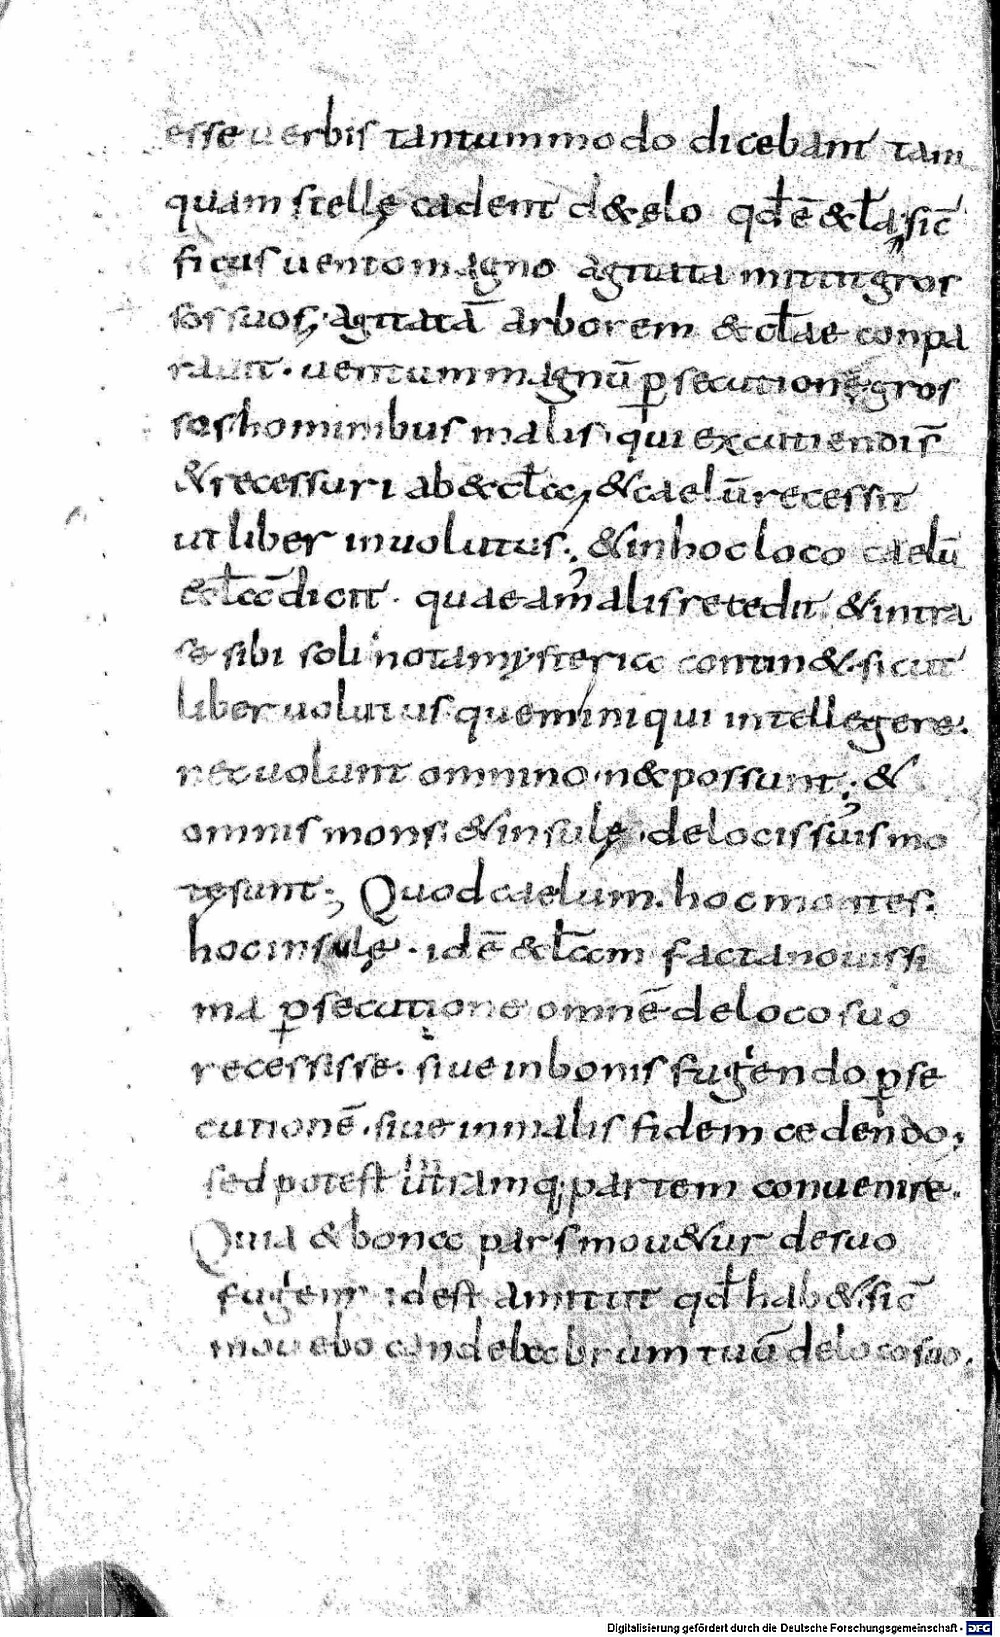 esse uerbis tantummodo dicebant tam
quam stellę cadent d& ęlo qđ ē & ƚa, sic̄
ficus uento magno agitata mittit gros
sos suos, agitatā arborem &cƚae conpa
rauit. uentum magnū ꝑsecutionę. gros
sos hominibus malis, qui excutiendis̄
& recessuri ab &cƚa, & caelū recessit
ut liber inuolutus; & in hoc loco caelū
ecƚam dicit. quae a malis recedit & intra
se sibi soli nota mysteria contin&. sicut
liber uolutus quem iniqui intellegere.
nec uolunt omnino. n& possunt; &
omnis mons. & insulę. de locis suis mo
tę sunt; Quod caelum. hoc montes.
hoc insulę. id ē &cƚam facta nouissi
ma ꝑsecutione omnē de loco suo
recessisse. siue in bonis fugiendo ꝑse
cutionē. siue in malis fidem cedendo;
sed potest in utramq; partem conuenire.
Quia & bona pars mou&ur de suo
fugiens idest amittit qđ hab&. sic̄
mouebo candelabrum tuū de loco suo.
Digitalisierung gefördert durch die Deutsche Forschungsgemeinschaft - DFG